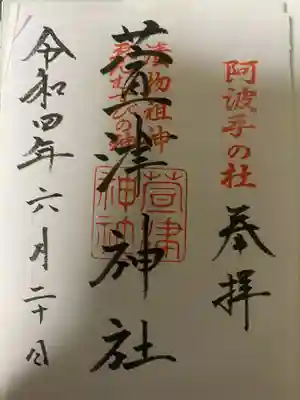 阿波手の杜
奉拝
漬物祖神
むすびの神
萱津神社
萱津
神社
令和四年六月二十日